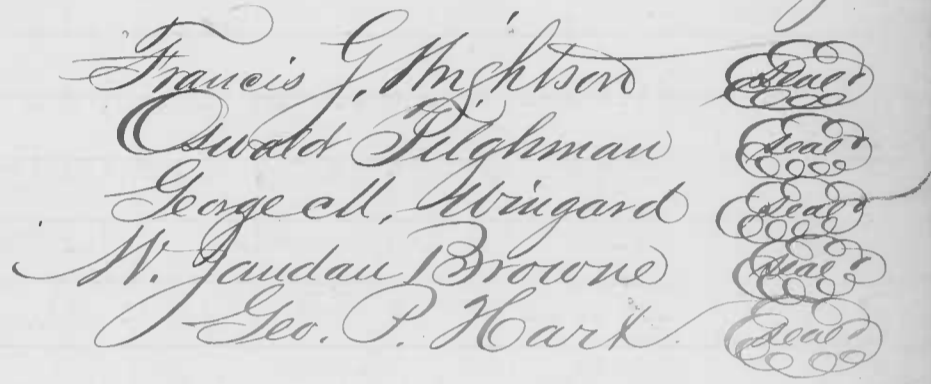 Francis G. Wrightson seal
Oswald Tilghman seal
George M. Wingard seal
W. Jaudan Browne seal
Geo. P. Hart seal